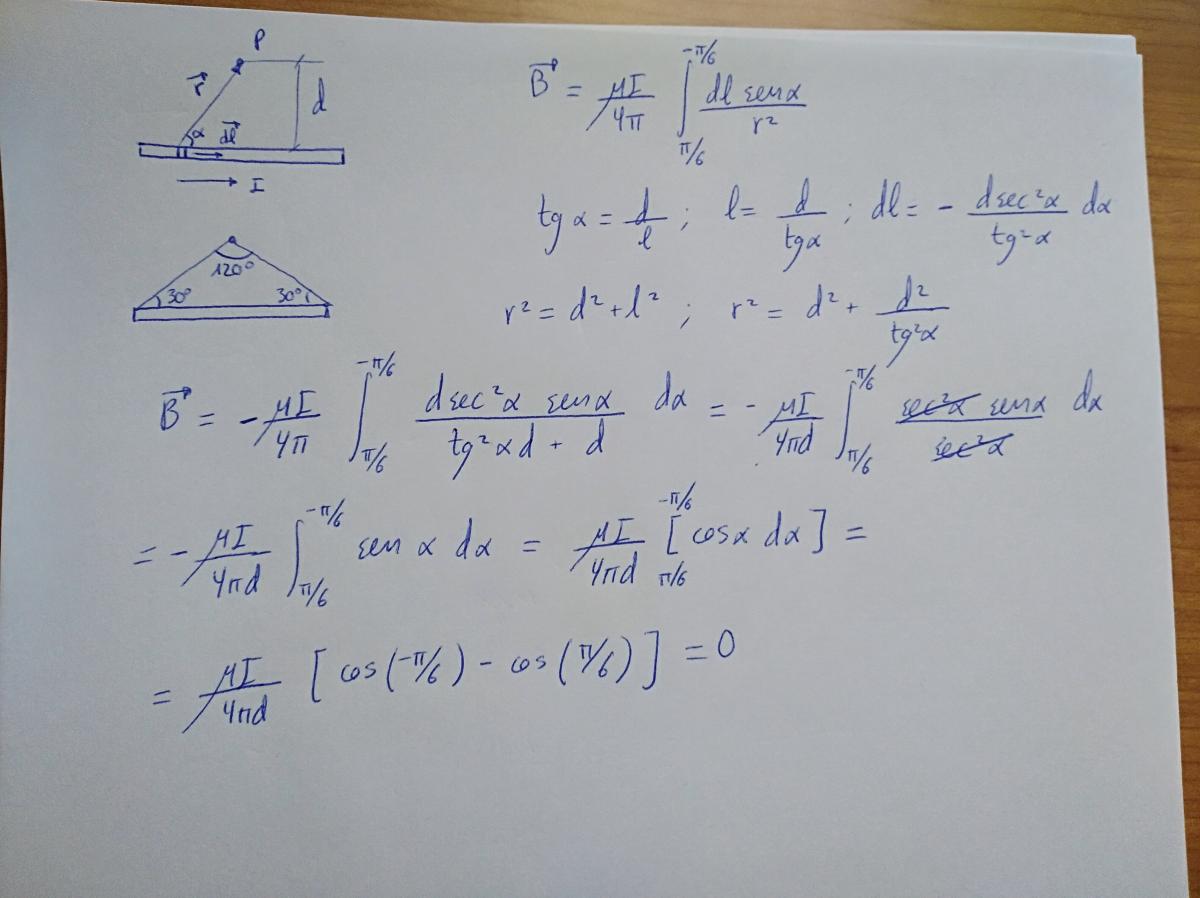 P
r⃗
d
α
dl⃗
I
120°
30° 30°
B⃗ = μI/4π ∫_{π/6}^{-π/6} dl sen α / r²
tg α = d/l ; l = d/tg α ; dl = - d sec²α / tg²α dα
r² = d² + l² ; r² = d² + d²/tg²α
B⃗ = - μI/4π ∫_{π/6}^{-π/6} d sec²α sen α / tg²α d + d dα = - μI/4πd ∫_{π/6}^{-π/6} sec²α sen α / sec²α dα
= - μI/4πd ∫_{π/6}^{-π/6} sen α dα = μI/4πd _{π/6}^{-π/6}[cos α dα] =
= μI/4πd [cos(-π/6) - cos(π/6)] = 0